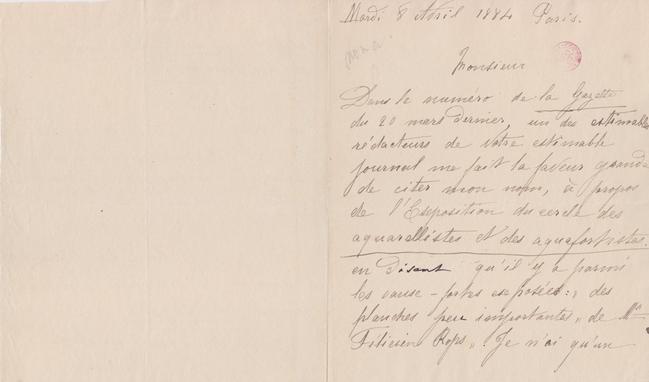 Mardi 8 Avril 1884 Paris.
Monsieur
Dans le numéro de la Gazette
du 20 mars dernier, un des estimables
rédacteurs de votre estimable
journal me fait la faveur grande
de citer mon nom, à propos
de l'Exposition du cercle des
aquarellistes et des aquafortistes.
en disant qu'il y a parmi
les eaux-fortes exposées : „ des
planches peu importantes „ de Mr
Félicien Rops „. Je n'ai qu'un